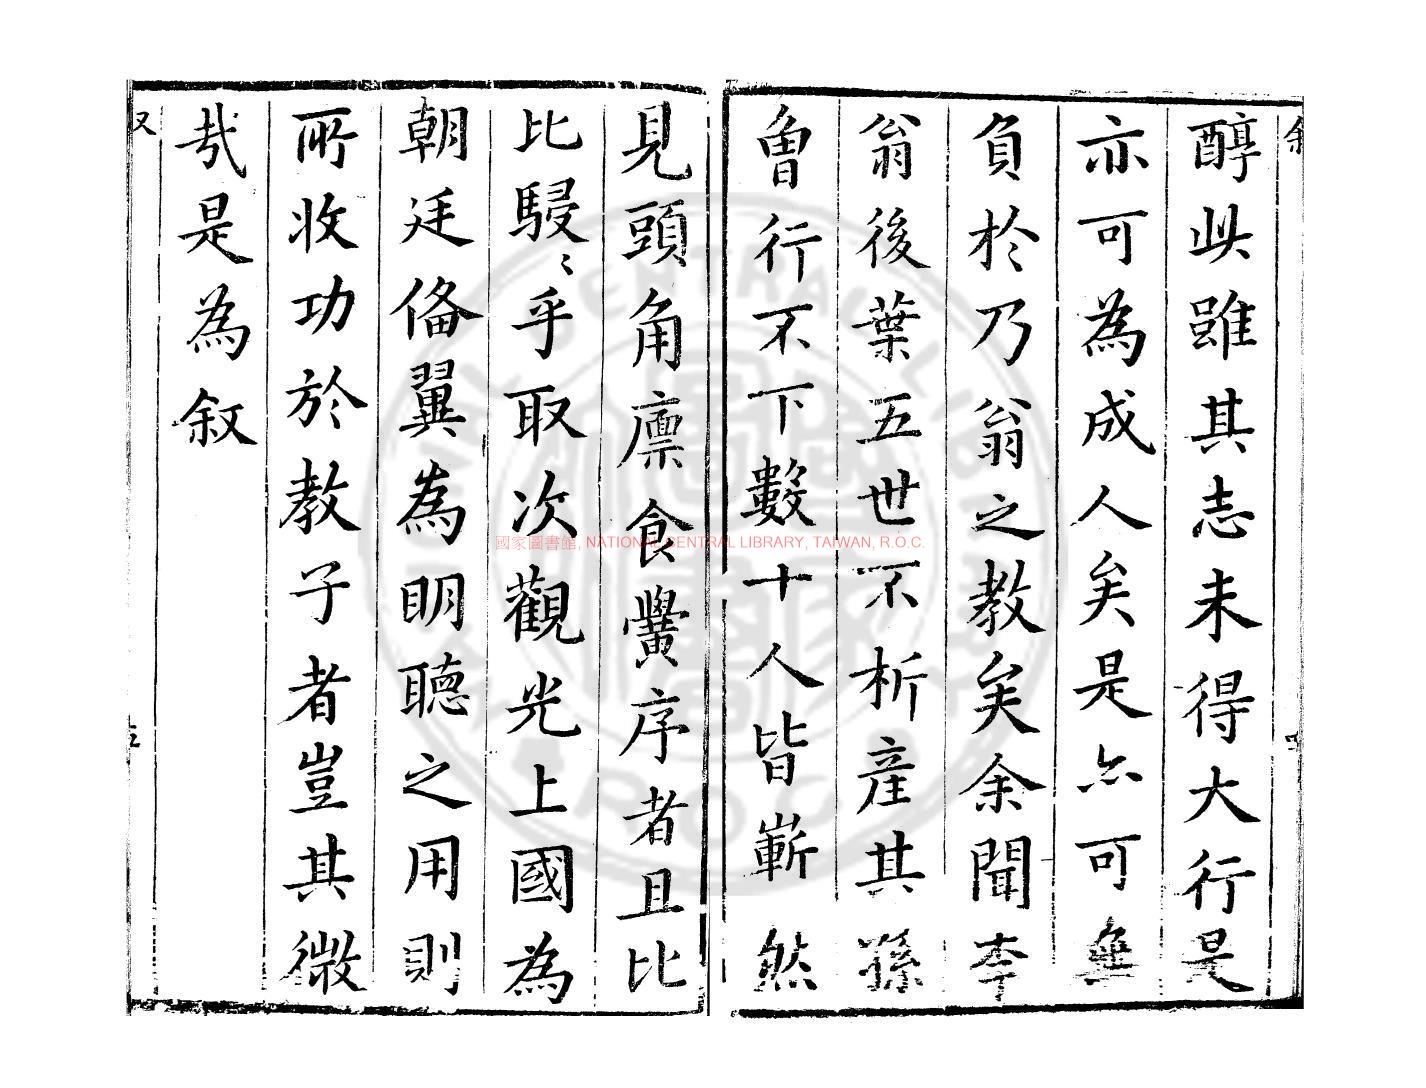 醇此雖其志未得大行是
亦可為成人矣是亦可無
負於乃翁之教矣余聞李
翁後葉五世不析產其孫
曾行不下數十人皆嶄然
見頭角廩食黌序者且比
比駸〻乎取次觀光上國為
朝廷俻翼為明聽之用則
所收功於教子者豈其微
㢤是為叙
國家圖書館, NATIONAL CENTRAL LIBRARY, TAIWAN, R.O.C.